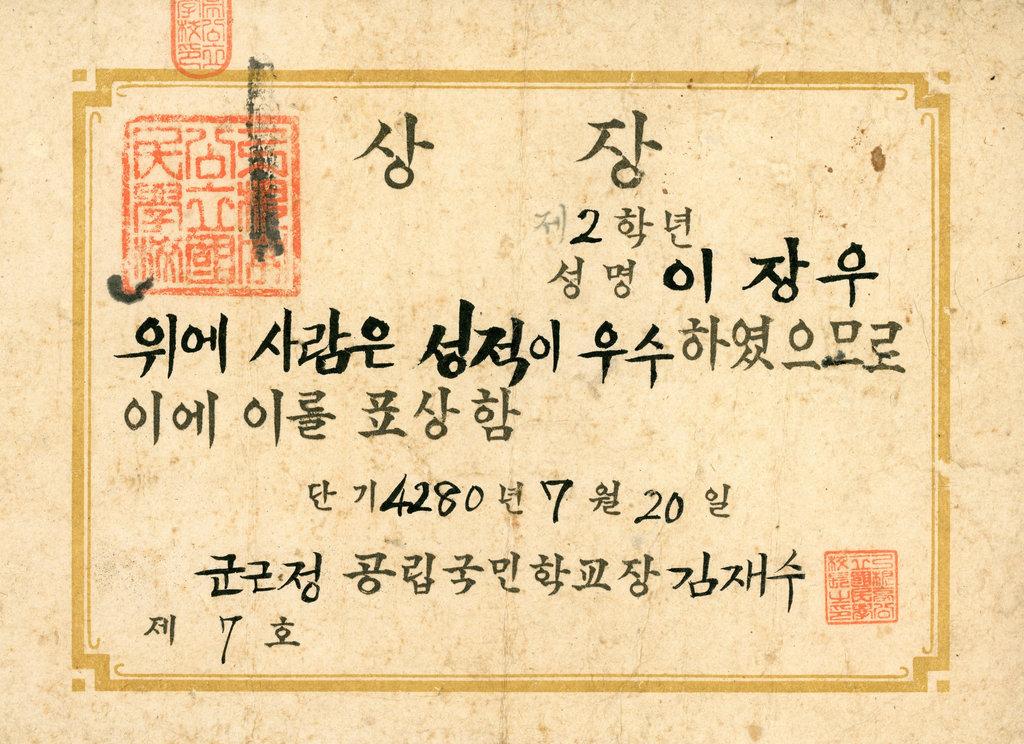 상 장
제2학년
성명 이장우
위에 사람은 성적이 우수하였으므로
이에 이를 표상함
단기4280년 7월 20일
군근정 공립국민학교장 김재수
제 7 호
公立國
民學校